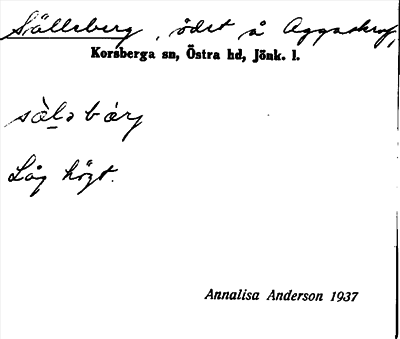 Sälleberg, ödet å Aggaskrof,
Korsberga sn, Östra hd, Jönk. l.
sàlǝbárj
Låg högt.
Annalisa Anderson 1937